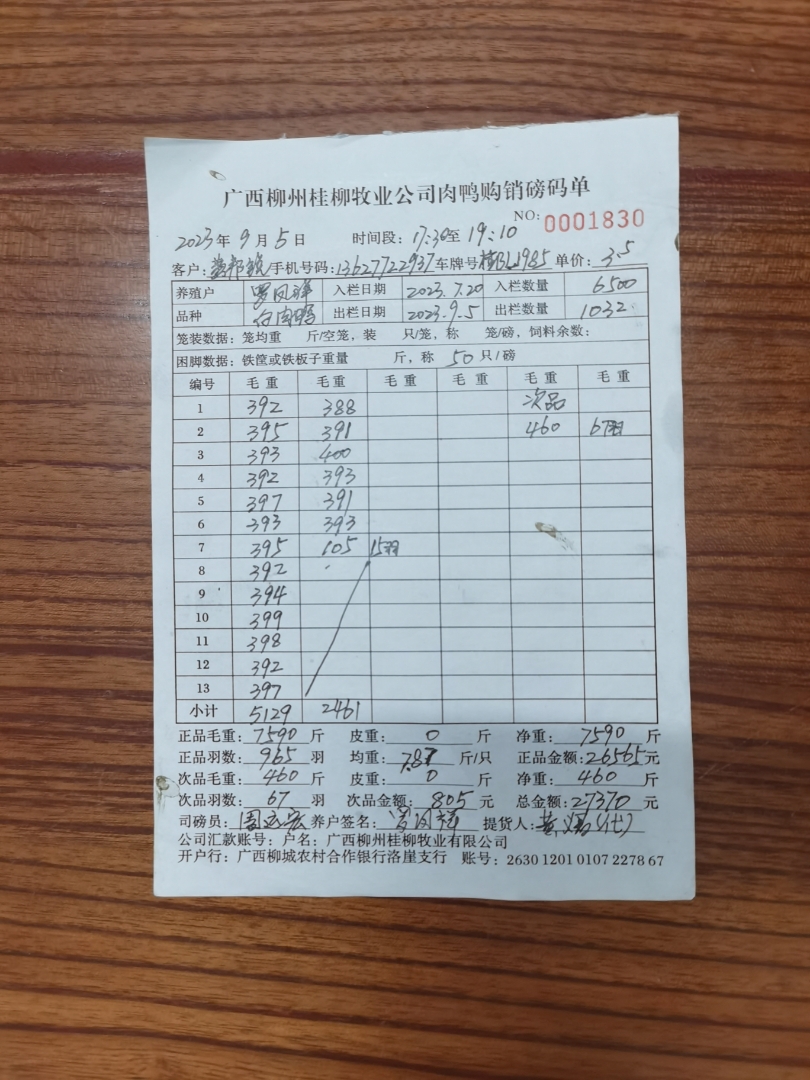 广西柳州桂柳牧业公司肉鸭购销磅码单
NO: 0001830
2023年 9月 5日 时间段: 17:30至 19:10
客户: 手机号码: 13627722937 车牌号 桂BL1985 单价: 3.5
养殖户 罗凤祥 入栏日期 2023.7.20 入栏数量 6500
品种 白肉鸭 出栏日期 2023.9.5 出栏数量 1032
笼装数据: 笼均重 斤/空笼, 装 只/笼, 称 笼/磅, 饲料余数:
困脚数据: 铁筐或铁板子重量 斤, 称 50 只/磅
编号 毛重 毛重 毛重 毛重 毛重 毛重
1 392 388 次品
2 395 391 460 67羽
3 393 400
4 392 393
5 397 391
6 393 393
7 395 105 15羽
8 392
9 394
10 399
11 398
12 392
13 397
小计 5129 2461
正品毛重: 7590 斤 皮重: 0 斤 净重: 7590 斤
正品羽数: 965 羽 均重: 7.87 斤/只 正品金额: 26565元
次品毛重: 460 斤 皮重: 0 斤 净重: 460 斤
次品羽数: 67 羽 次品金额: 805 元 总金额: 27370元
司磅员: 养户签名: 罗凤祥 提货人: (代)
公司汇款账号: 户名: 广西柳州桂柳牧业有限公司
开户行: 广西柳城农村合作银行洛崖支行 账号: 2630 1201 0107 2278 67